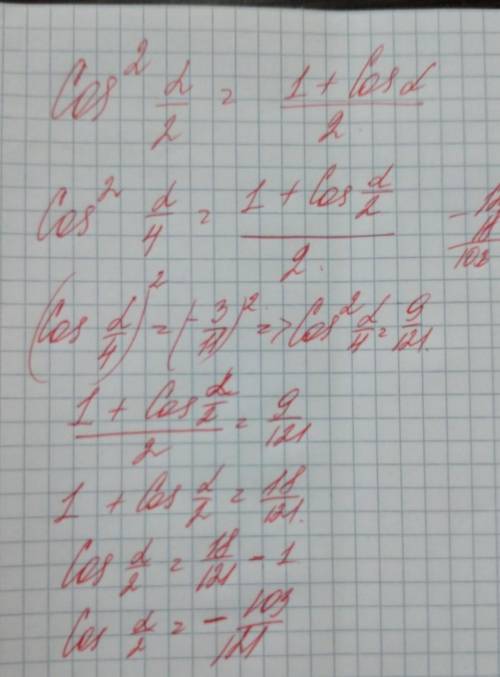 Cos² α/2 = (1 + Cos α)/2
Cos² α/4 = (1 + Cos α/2)/2
(Cos α/4)² = (-3/11)² => Cos² α/4 = 9/121.
(1 + Cos α/2)/2 = 9/121
1 + Cos α/2 = 18/121.
Cos α/2 = 18/121 - 1
Cos α/2 = - 103/121